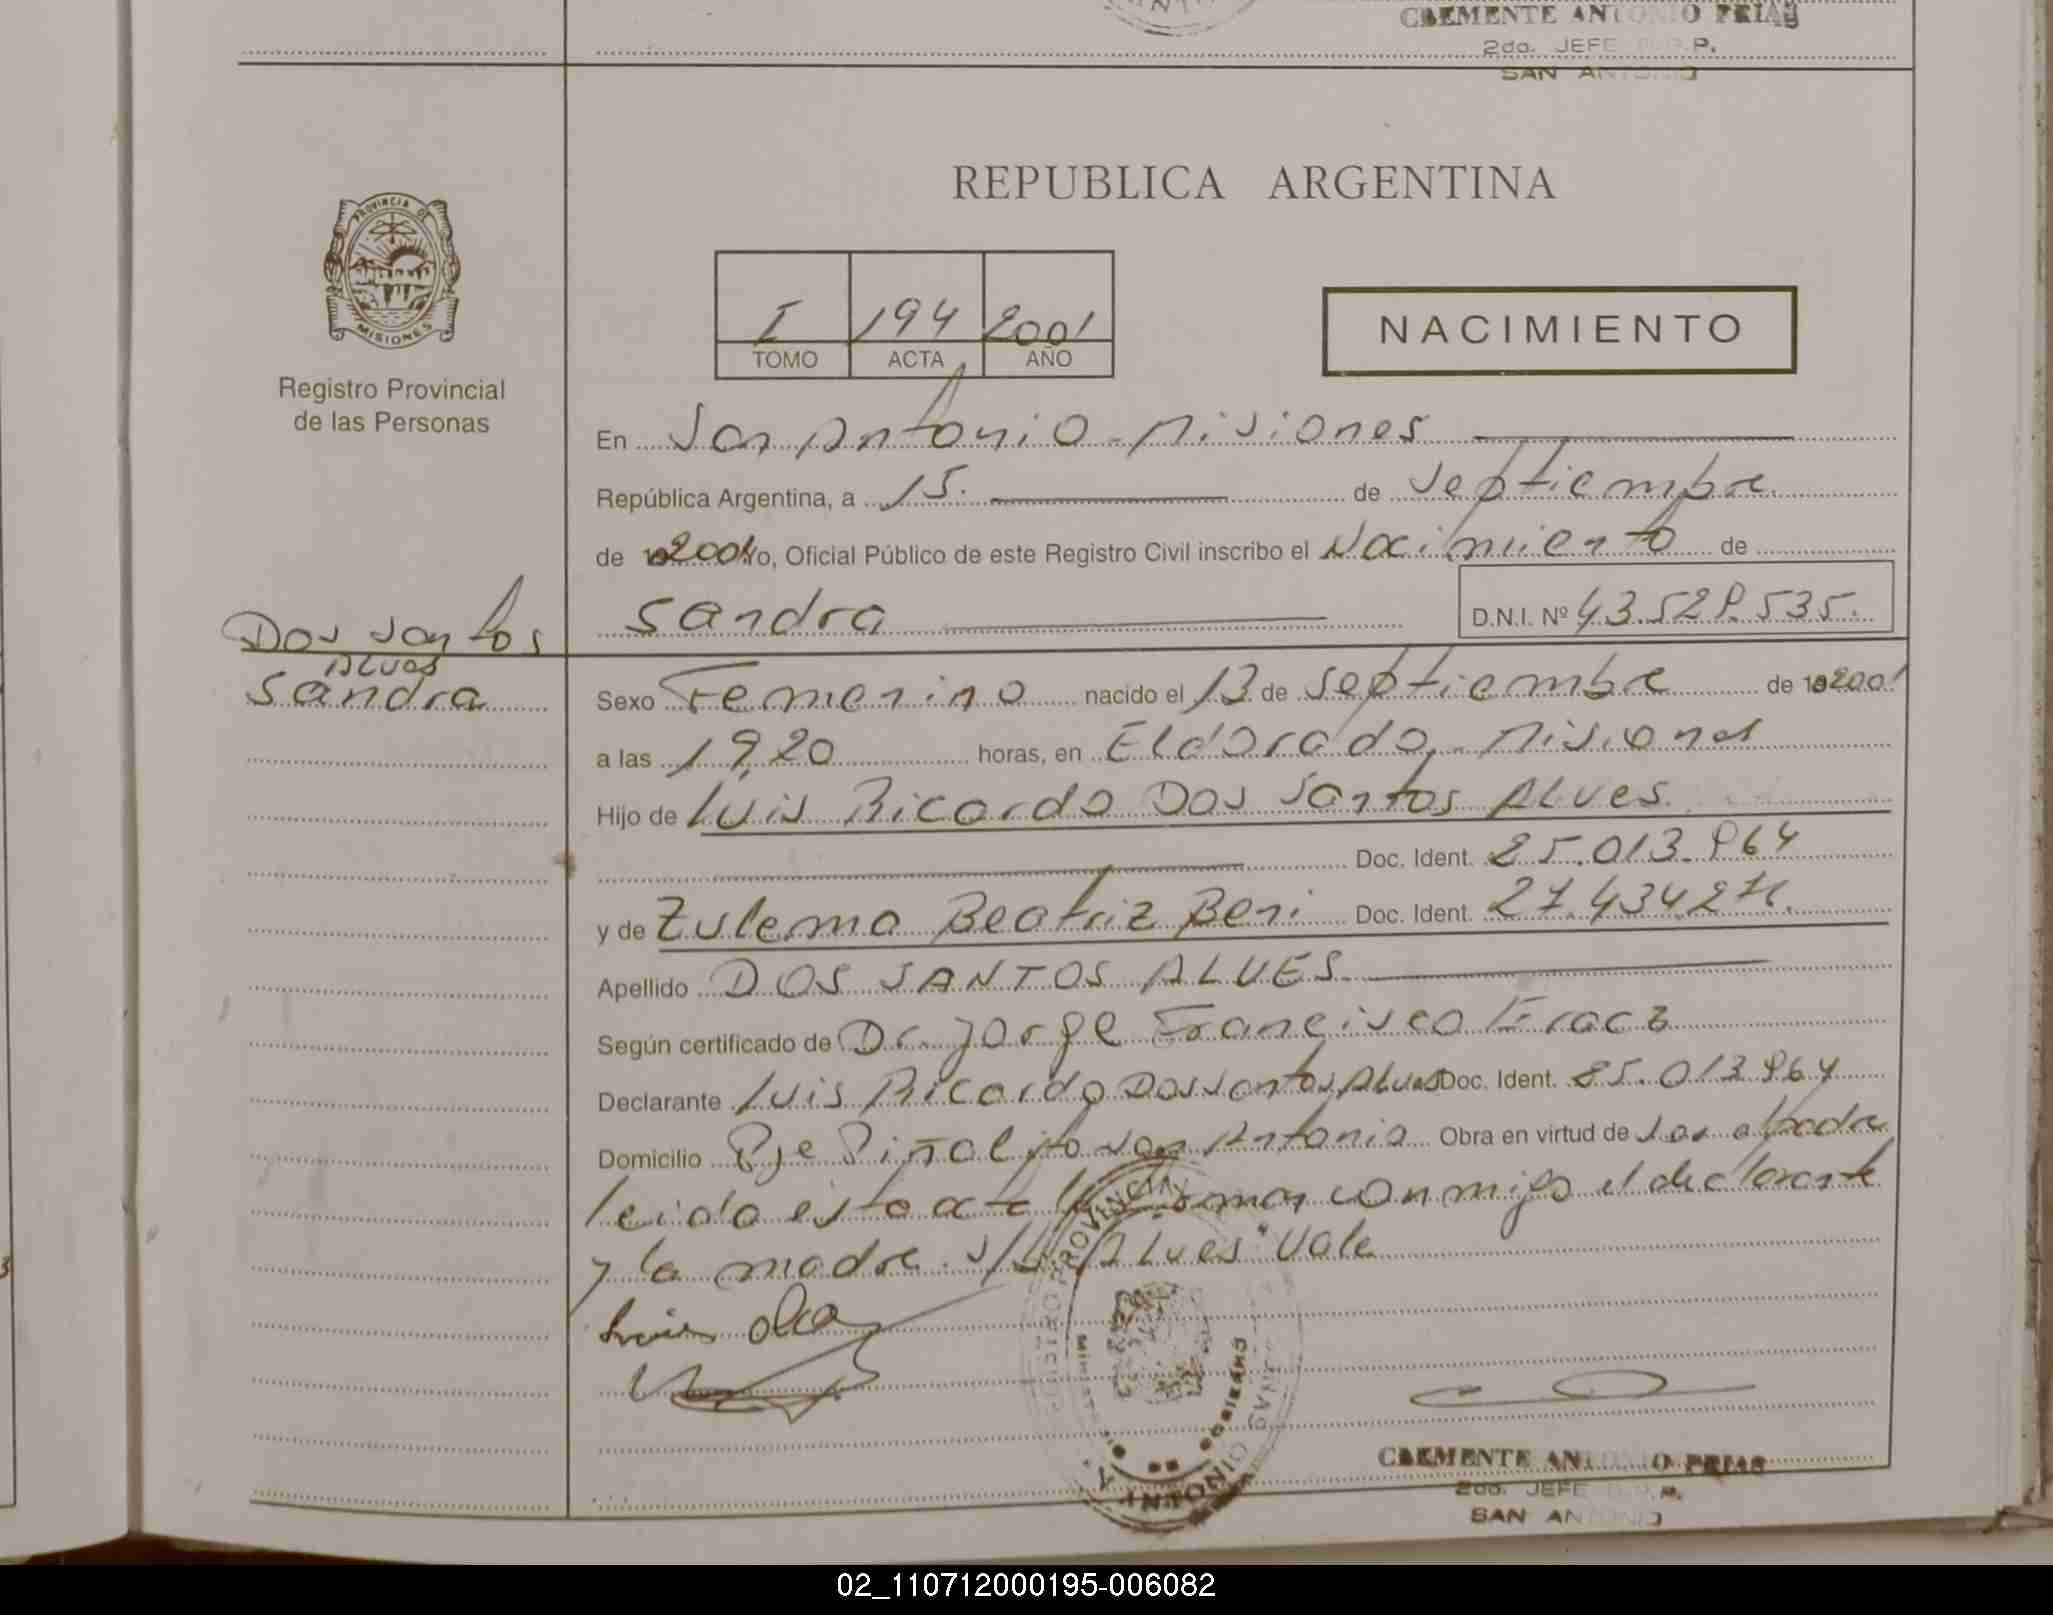 CLEMENTE ANTONIO FRIAS
2do. JEFE R.P.P.
SAN ANTONIO
REPUBLICA ARGENTINA
PROVINCIA DE
MISIONES
Registro Provincial
de las Personas
I 194 2001
TOMO ACTA AÑO
NACIMIENTO
En San Antonio - Misiones
República Argentina, a 15. de Septiembre
de 2001 Yo, Oficial Público de este Registro Civil inscribo el Nacimiento de
Sandra D.N.I. Nº 43.528.535.
Dos Santos
Alves
Sandra
Sexo Femenino nacido el 13 de Septiembre de 2001
a las 19,20 horas, en Eldorado - Misiones
Hijo de Luis Ricardo Dos Santos Alves
Doc. Ident. 25.013.864
y de Zulema Beatriz Beni Doc. Ident. 27.434.271.
Apellido DOS SANTOS ALVES
Según certificado de Dr. Jorge Francisco
Declarante Luis Ricardo Dos Santos Alves Doc. Ident. 25.013.864
Domicilio Pje Piñalito San Antonio Obra en virtud de
leida esta acta firman conmigo el declarante
y la madre. S/L "Alves" Vale
CLEMENTE ANTONIO FRIAS
2do. JEFE R.P.P.
SAN ANTONIO
02_110712000195-006082